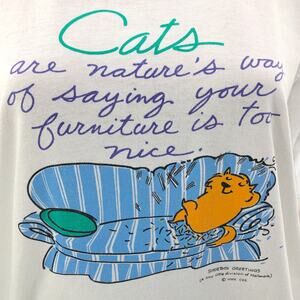 Cats
are nature's way
of saying your
furniture is too
nice.
SHOEBOX GREETINGS
(A tiny little division of Hallmark)